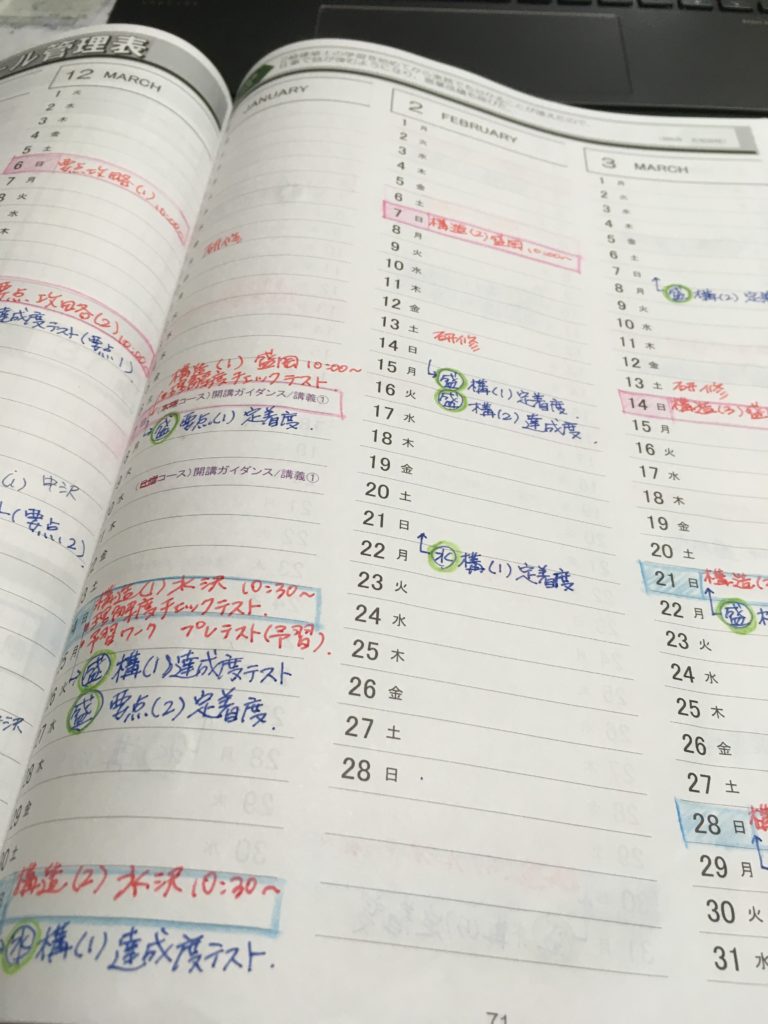 ル管理表
12 MARCH
1 火
2 水
3 木
4 金
5 土
6 日 要点攻略(1) 10:00〜
7 月
8 火
水
木
要点攻略(2) 10:00
達成度テスト(要点1)
(1) 中沢
ト(要点2)
JANUARY
研修
構造(1) 盛岡 10:00〜
理解度チェックテスト
コース)開講ガイダンス/講義①
盛 要点(1) 定着度.
コース)開講ガイダンス/講義①
構造(1) 水沢 10:30〜
理解度チェックテスト.
予習ワーク プレテスト(予習).
盛 構(1)達成度テスト
盛 要点(2)定着度.
27 水
28 木
29 金
30 土
構造(2) 水沢 10:30〜
水 構(1) 達成度テスト.
2 FEBRUARY
1 月
2 火
3 水
4 木
5 金
6 土
7 日 構造(2) 盛岡 10:00〜
8 月
9 火
10 水
11 木
12 金
13 土 研修
14 日
15 月 盛 構(1) 定着度.
16 火 盛 構(2) 達成度.
17 水
18 木
19 金
20 土
21 日
22 月 水 構(1) 定着度
23 火
24 水
25 木
26 金
27 土
28 日
3 MARCH
1 月
2 火
3 水
4 木
5 金
6 土
7 日
8 月 盛 構(2) 定着
9 火
10 水
11 木
12 金
13 土 研修
14 日 構造(3) 盛
15 月
16 火
17 水
18 木
19 金
20 土
21 日 構造(3
22 月 盛 構
23 火
24 水
25 木
26 金
27 土
28 日 構
29 月
30 火
31 水
71